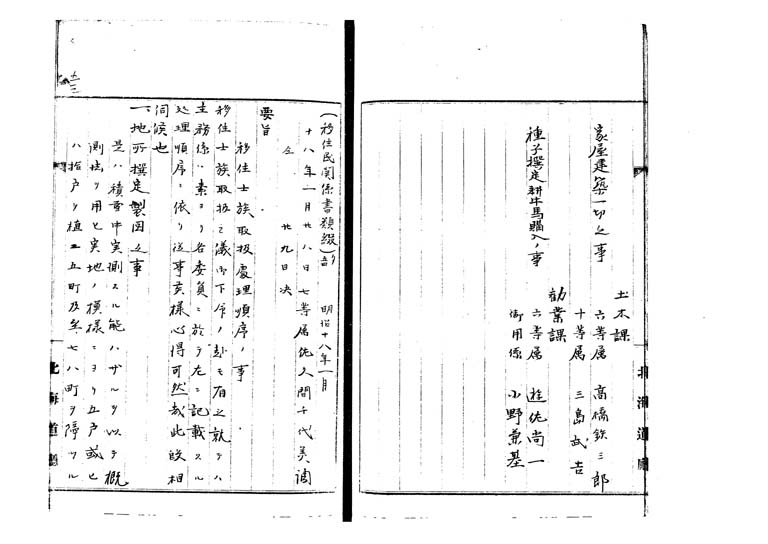 家屋建築一切之事
土木課
六等属 高橋鉄三郎
十等属 三島武吉
種子撰定耕牛馬購入ノ事
勧業課
六等属 遊佐尚一
御用係 小野兼基
北海道廳
(移住民関係書類綴) 明治十八年一月
十八年一月廿八日 七等属佐久間千代美調
仝 廿九日決
要旨
移住士族取扱處理順序ノ事
移住士族取扱之儀 御下序ノ 有之就テハ
主務係ハ素ヨリ各委員ニ於テ左ニ記載スル
処理順序ニ依リ従事 様心得可然哉此段相
伺候也
一 地所撰定製図之事
是ハ積雪中実測スル能ハザルヲ以テ概
測法ヲ用ヒ実地ノ模様ニヨリ五戸或ヒ
ハ拾戸ヲ植エ五町乃至七八町ヲ隔ツル
北海道廳